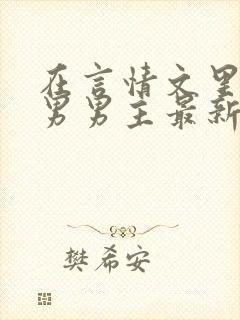 在言情文里
男男主最新
樊希安